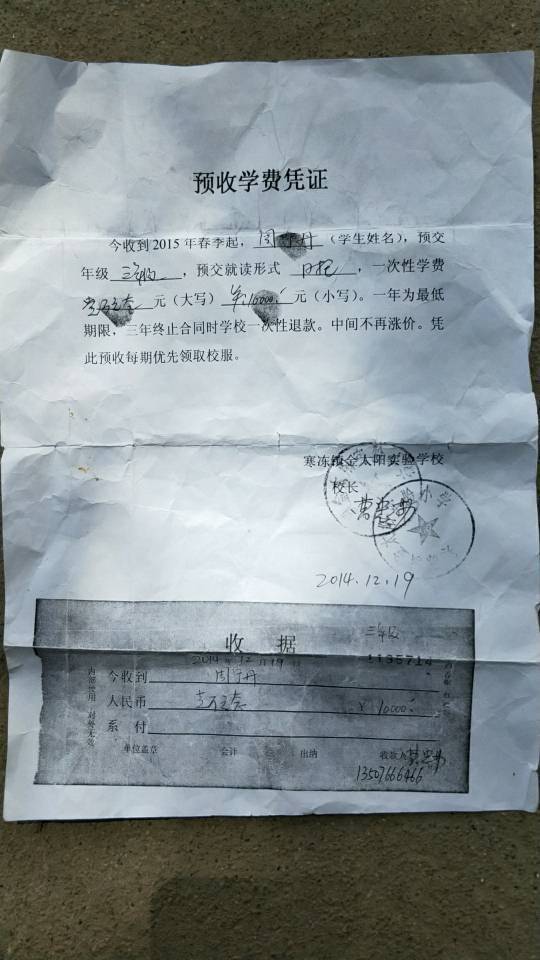 预收学费凭证
今收到 2015 年春季起，周丹（学生姓名），预交
年级 三年级 ，预交就读形式 ，一次性学费
壹万元 元（大写） 10000 元（小写）。一年为最低
期限，三年终止合同时学校一次性退款。中间不再涨价。凭
此预收每期优先领取校服。
寒冻镇金太阳实验学校
校长
2014.12.19
三年级
收 据
2014 年 12 月 19 日 1135714
今收到 周宁丹
人民币 ¥ 10000
系 付
单位盖章 会计 出纳 收款人
13507666466
内部使用 对外无效